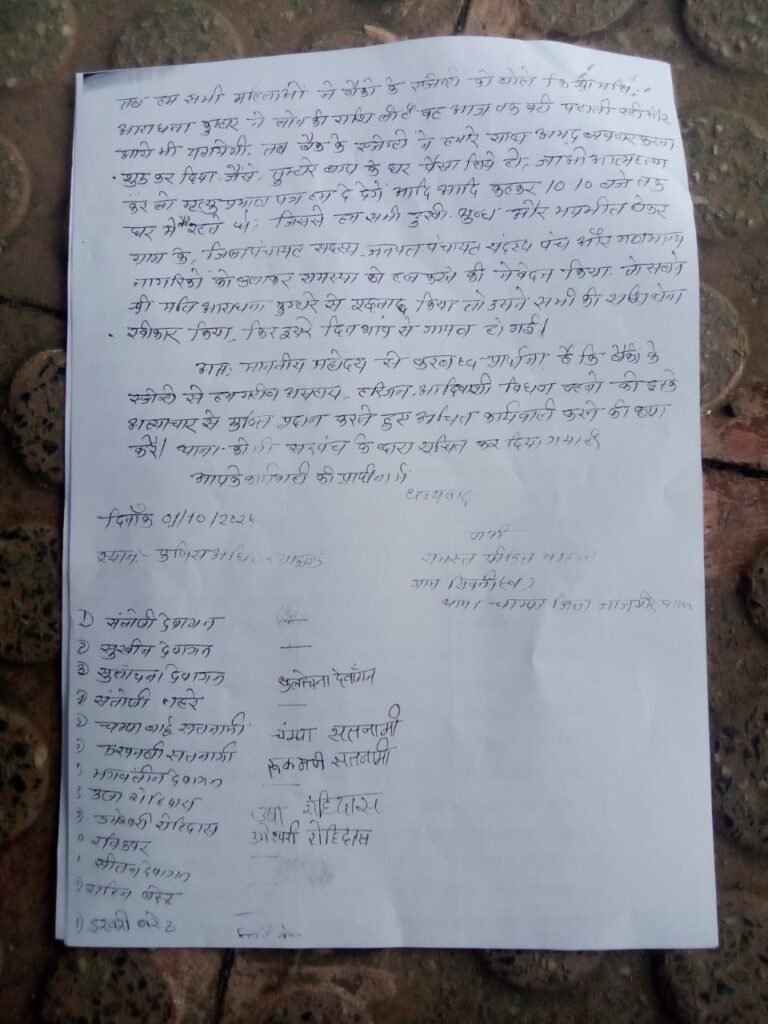 तब हम सभी महिलाओं ने बैंको के एजेन्टो को बोले कि श्रीमति
आराधना कुम्हार ने लोन की राशि ली है वह आज तक वही पटाती रही और
आगे भी पटायेगी. तब बैंक के एजेन्टो ने हमारे साथ अभद्र व्यवहार करना
शुरू कर दिया जैसे, तुम्हारे बाप के घर पैसा लिये हो, जाओ आत्महत्या
कर लो मृत्यु प्रमाण पत्र हम दे देंगे आदि आदि कहकर 10 10 बजे तक
घर में रहते थे, जिससे हम सभी दुखी. और भयभीत होकर
ग्राम के, जिला पंचायत सदस्य, जनपत पंचायत सदस्य पंच और गणमान्य
नागरिकों को बुलाकर समस्या को हल करने की निवेदन किया.
श्री मति आराधना कुम्हार से किया तो उसने सभी की राशि देना
स्वीकार किया, फिर दूसरे दिन गांव से गायब हो गई।
अतः माननीय महोदय से करबध्द प्रार्थना है कि बैंको के
एजेन्टो से हम गरीब असहाय, हरिजन, आदिवासी विधवा बहनो को इनके
अत्याचार से मुक्ति प्रदान करते हुए उचित कार्यवाही करने की कृपा
करें। थाना को भी सरपंच के द्वारा सूचित कर दिया गया है
आपके कार्यवाही की प्रार्थी
धन्यवाद
दिनाँक 01/10/2024
प्रार्थी
स्थान:- पुलिस
समस्त पीड़ित महिला
ग्राम सिवनी
थाना चाम्पा जिला जांजगीर चाम्पा
1) संतोषी देवांगन
2) सुखीन देवांगन
3) सुलोचना देवांगन सुलोचना देवांगन
4) संतोषी
5) चम्पा बाई सतनामी चंम्पा सतनामी
रूकमणी सतनामी रूकमणी सतनामी
देवांगन
उषा रोहिदास उषा रोहिदास
उमेश्वरी रोहिदास उमेश्वरी रोहिदास
देवांगन
बरेठ
बरेठ